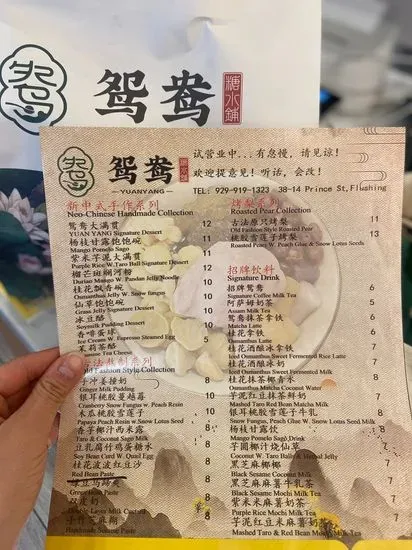 鸳鸯
糖水鋪
鸳鸯
糖水鋪
—YUANYANG—
试营业中...有怠慢，请见谅！
欢迎提意见！听话，会改！
TEL: 929-919-1323 38-14 Prince St,Flushing
新中式手作系列
Neo-Chinese Handmade Collection
鸳鸯大满贯 12
YUAN YANG Signature Dessert
杨枝甘露饱饱碗 12
Mango Pomelo Sago
紫米芋泥大满贯
Purple Rice W.Taro Ball Signature Dessert
榴芒班斓河粉
Durian Mango W. Pandan Jelly Noodle
桂花飘香碗
Osmanthus Jelly W. Snow fungus
仙草饱饱碗
Grass Jelly Signature Dessert
冰豆酪
Soymilk Pudding Dessert
香啡蛋球
Ice Cream W. Espresso Steamed Egg
茉莉茶酪
Old Fashion Style Collection
子冲姜撞奶 8
Ginger Milk Pudding
银耳桃胶蔓越莓 10
Cranberry Snow Fungus w. Peach Resin
木瓜桃胶雪莲子 10
Papaya Peach Resin w.Snow Lotus Seed
香芋椰汁西米露
Taro & Coconut Sago Milk
豆乳腐竹鸡蛋糖水
Soy Bean Curd W. Quail Egg
桂花波波红豆沙
Red Bean Paste
Ginger Bean Paste
双皮奶
Double Layer Milk Custard
子竹芝麻糊
Handmade Sesame Paste
烤梨系列
Roasted Pear Collection
古法原只烤梨 11
Old Fashion Style Roasted Pear
桃胶雪莲子烤梨 13
Roasted Pears W. Peach Glue & Snow Lotus Seeds
招牌饮料
Signature Drink
招牌鸳鸯 6
Signature Coffee Milk Tea
阿萨姆奶茶
Assam Milk Tea
鸳鸯抹茶拿铁
Matcha Latte
桂花拿铁
Osmanthus Latte
桂花酒酿冰拿铁
Iced Osmanthus Sweet Fermented Rice Latte
桂花酒酿奶
Iced Osmanthus Sweet Fermented Milk
桂花抹茶椰香水
Osmanthus Matcha Coconut Water
芋泥红豆抹茶鲜奶
Mashed Taro Red Bean Matcha Milk
银耳桃胶雪莲子牛乳
Snow Fungus, Peach Glue W. Snow Lotus Seeds Milk
杨枝甘露饮
Mango Pomelo Sago Drink
芋圆椰汁烧仙草
Coconut W. Taro Bally & Herbal Jelly
黑芝麻椰椰
Black Sesame Coconut Milk
黑芝麻麻薯牛乳茶
Black Sesame Mochi Milk Tea
紫米米麻薯奶茶
Purple Rice Mochi Milk Tea
芋泥红豆米麻薯奶茶
Mashed Taro & Red Bean Mochi Milk Tea